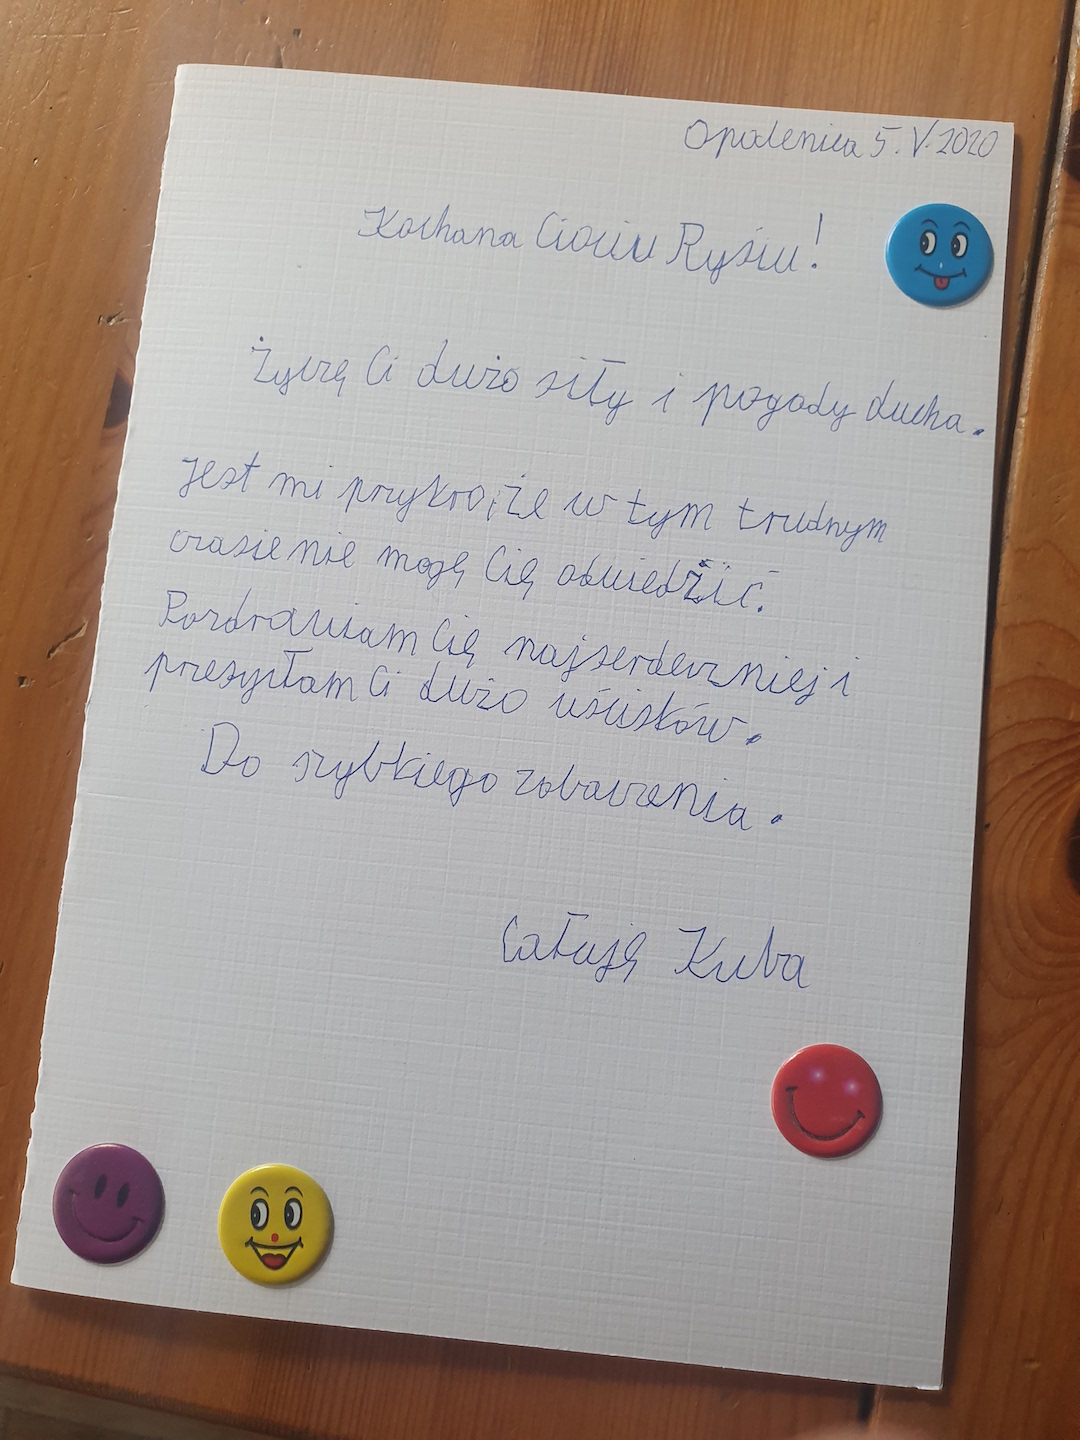 Opalenica 5.V.2020
Kochana Ciociu Rysiu!
Życzę Ci dużo siły i pogody ducha.
Jest mi przykro, że w tym trudnym
czasie nie mogę Cię odwiedźić.
Pozdrawiam Cię najserdeczniej i
przesyłam Ci dużo uścisków.
Do szybkiego zobaczenia.
Całuję Kuba